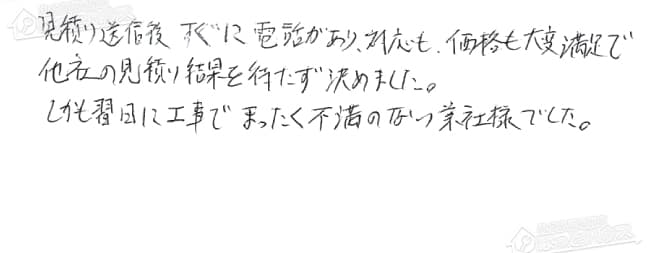 見積り送信後 すぐに電話があり、対応も、価格も大変満足で
他社の見積り結果を待たず決めました。
しかも翌日に工事で まったく不満のない業社様でした。